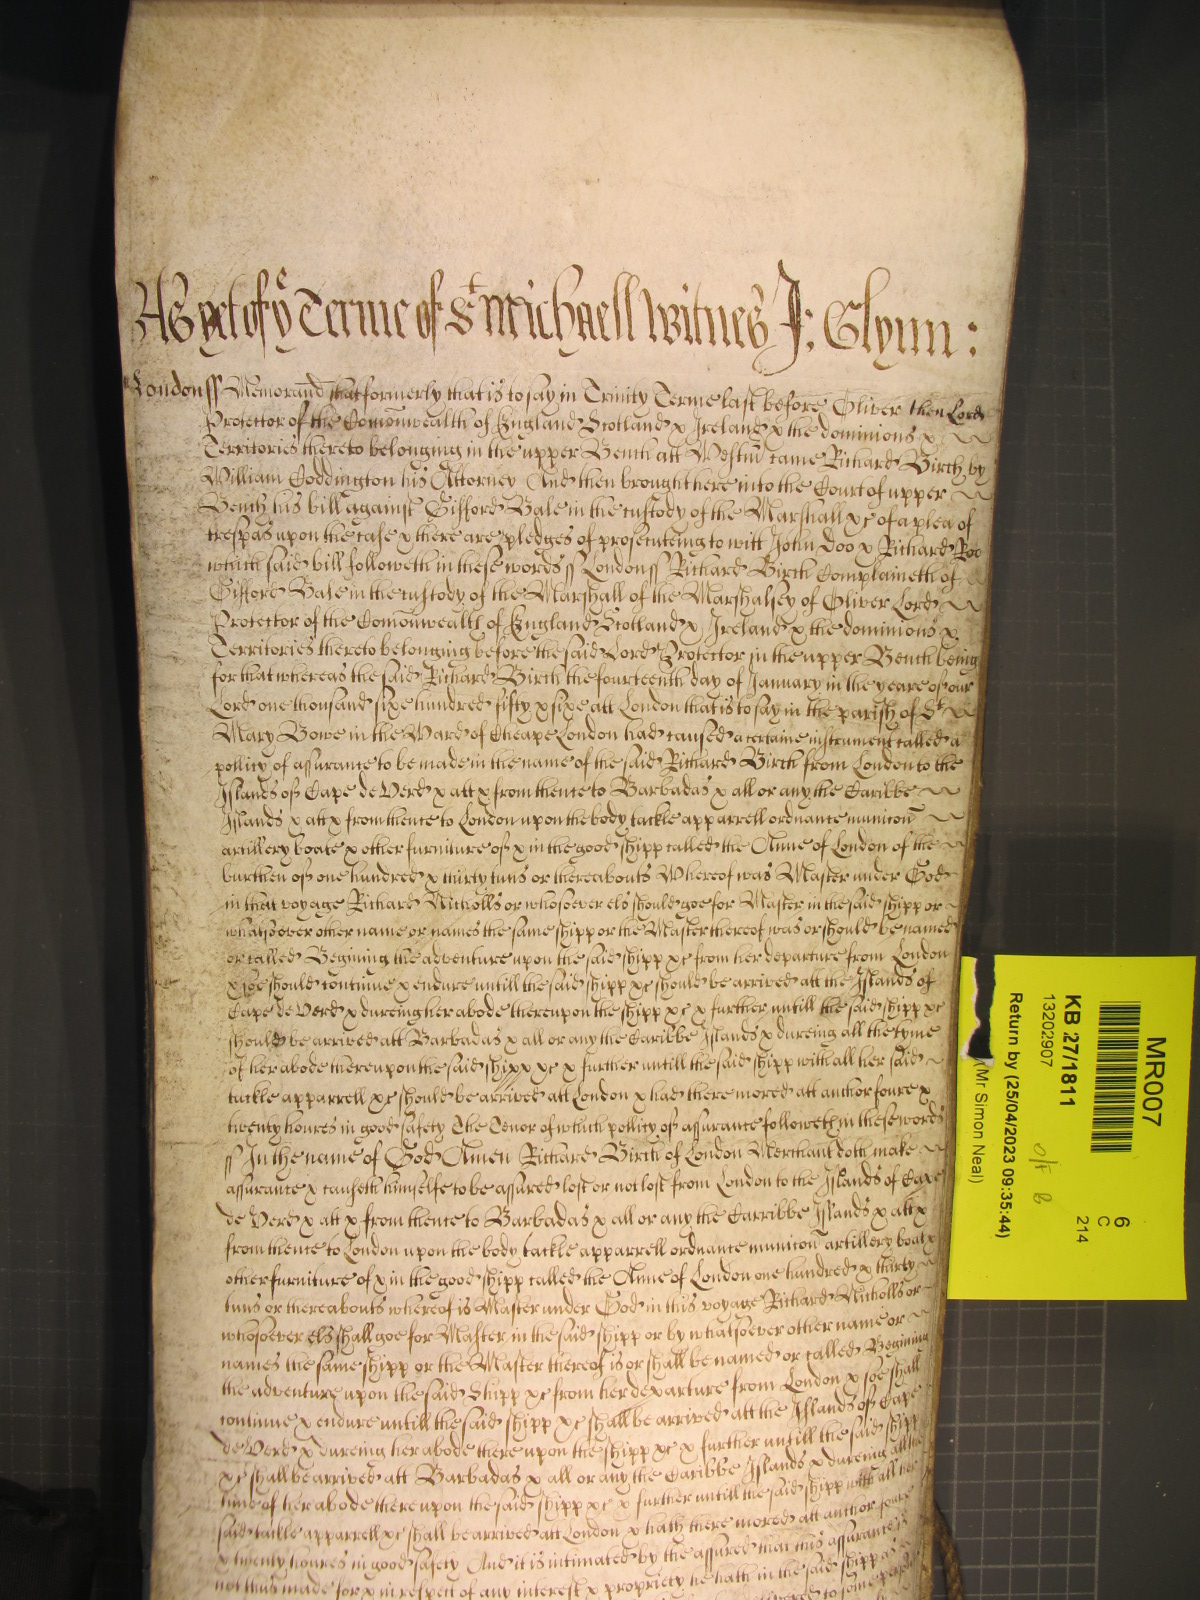 As yet of ye Terme of St Michaell Witnes J: Glynn:
London ss Memorand that formerly that is to say in Trinity Terme last before Oliver then Lord
Protector of the Comonwealth of England Scotland & Ireland & the dominions &
Territories thereto belonging in the upper Bench att Westm came Richard Birch by
William Coddington his Attorney And then brought here into the Court of upper
Bench his bill against Gifford Bale in the custody of the Marshall &c of a plea of
trespas upon the case & there are pledges of prosecuteing to witt John Doo & Richard Roo
which said bill followeth in these words ss London ss Richard Birch Complaineth of
Gifford Bale in the custody of the Marshall of the Marshalsey of Oliver Lord
Protector of the Comonwealth of England Scotland & Ireland & the dominions &
Territories thereto belonging before the said Lord Protector in the upper Bench being
for that whereas the said Richard Birch the fourteenth day of January in the yeare of our
Lord one thousand sixe hundred fifty & sixe att London that is to say in the parish of St
Mary Bowe in the Ward of Cheape London had caused a certaine instrument called a
pollicy of assurance to be made in the name of the said Richard Birch from London to the
Islands of Cape de Verd & att & from thence to Barbadas & all or any the Caribbe
Islands & att & from thence to London upon the body tackle apparrell ordnance municon
artillery boate & other furniture of & in the good shipp called the Anne of London of the
burthen of one hundred & thirty tuns or thereabouts Whereof was Master under God
in that voyage Richard Nicholls or whosoever els should goe for Master in the said shipp or
whatsoever other name or names the same shipp or the Master thereof was or should be named
or called Begining the adventure upon the said shipp &c from her departure from London
& soe should continue & endure untill the said shipp &c should be arrived att the Islands of
Cape de Verd & dureing her abode thereupon the shipp &c & further untill the said shipp &c
should be arrived att Barbadas & all or any the Caribbe Islands & dureing all the tyme
of her abode thereupon the said shipp &c & further untill the said shipp with all her said
tackle apparrell &c should be arrived att London & had there mored att anchor foure &
twenty houres in good safety The Tenor of which pollicy of assurance followeth in these words
ss In the name of God Amen Richard Birch of London Merchant doth make
assurance & causeth himselfe to be assured lost or not lost from London to the Islands of Cape
de Verd & att & from thence to Barbadas & all or any the Carribbe Islands & att &
from thence to London upon the body tackle apparrell ordnance municon artillery boat &
other furniture of & in the good shipp called the Anne of London one hundred & thirty
tuns or thereabouts whereof is Master under God in this voyage Richard Nicholls or
whosoever els shall goe for Master in the said shipp or by whatsoever other name or
names the same shipp or the Master thereof is or shall be named or called Begining
the adventure upon the said Shipp &c from her departure from London & soe shall
continue & endure untill the said shipp &c shall be arrived att the Islands of Cape
de Verd & dureing her abode there upon the shipp &c & further untill the said shipp
&c shall be arrived att Barbadas & all or any the Caribbe Islands & dureing all the
time of her abode there upon the said shipp &c & further untill the said shipp with all her
said tackle apparrell &c shall be arrived att London & hath there mored att anchor foure
& twenty houres in good safety And it is intimated by the assured that this assurance is
not thus made for & in respect of any interest & propriety he hath in the said shipp as
MR007
6
C
214
KB 27/1811
13202907
o/r b
Return by (25/04/2023 09:35:44)
(Mr Simon Neal)